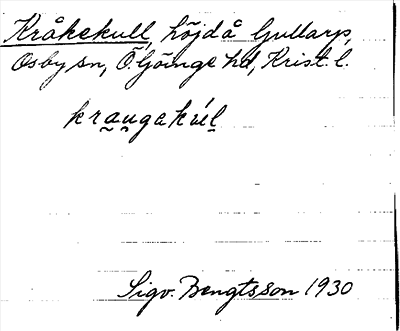 Kråkekull, höjd å Gullarp,
Osby sn, Ö. Göinge hd, Krist. l.
kraugekúl
Sigv. Bengtsson 1930